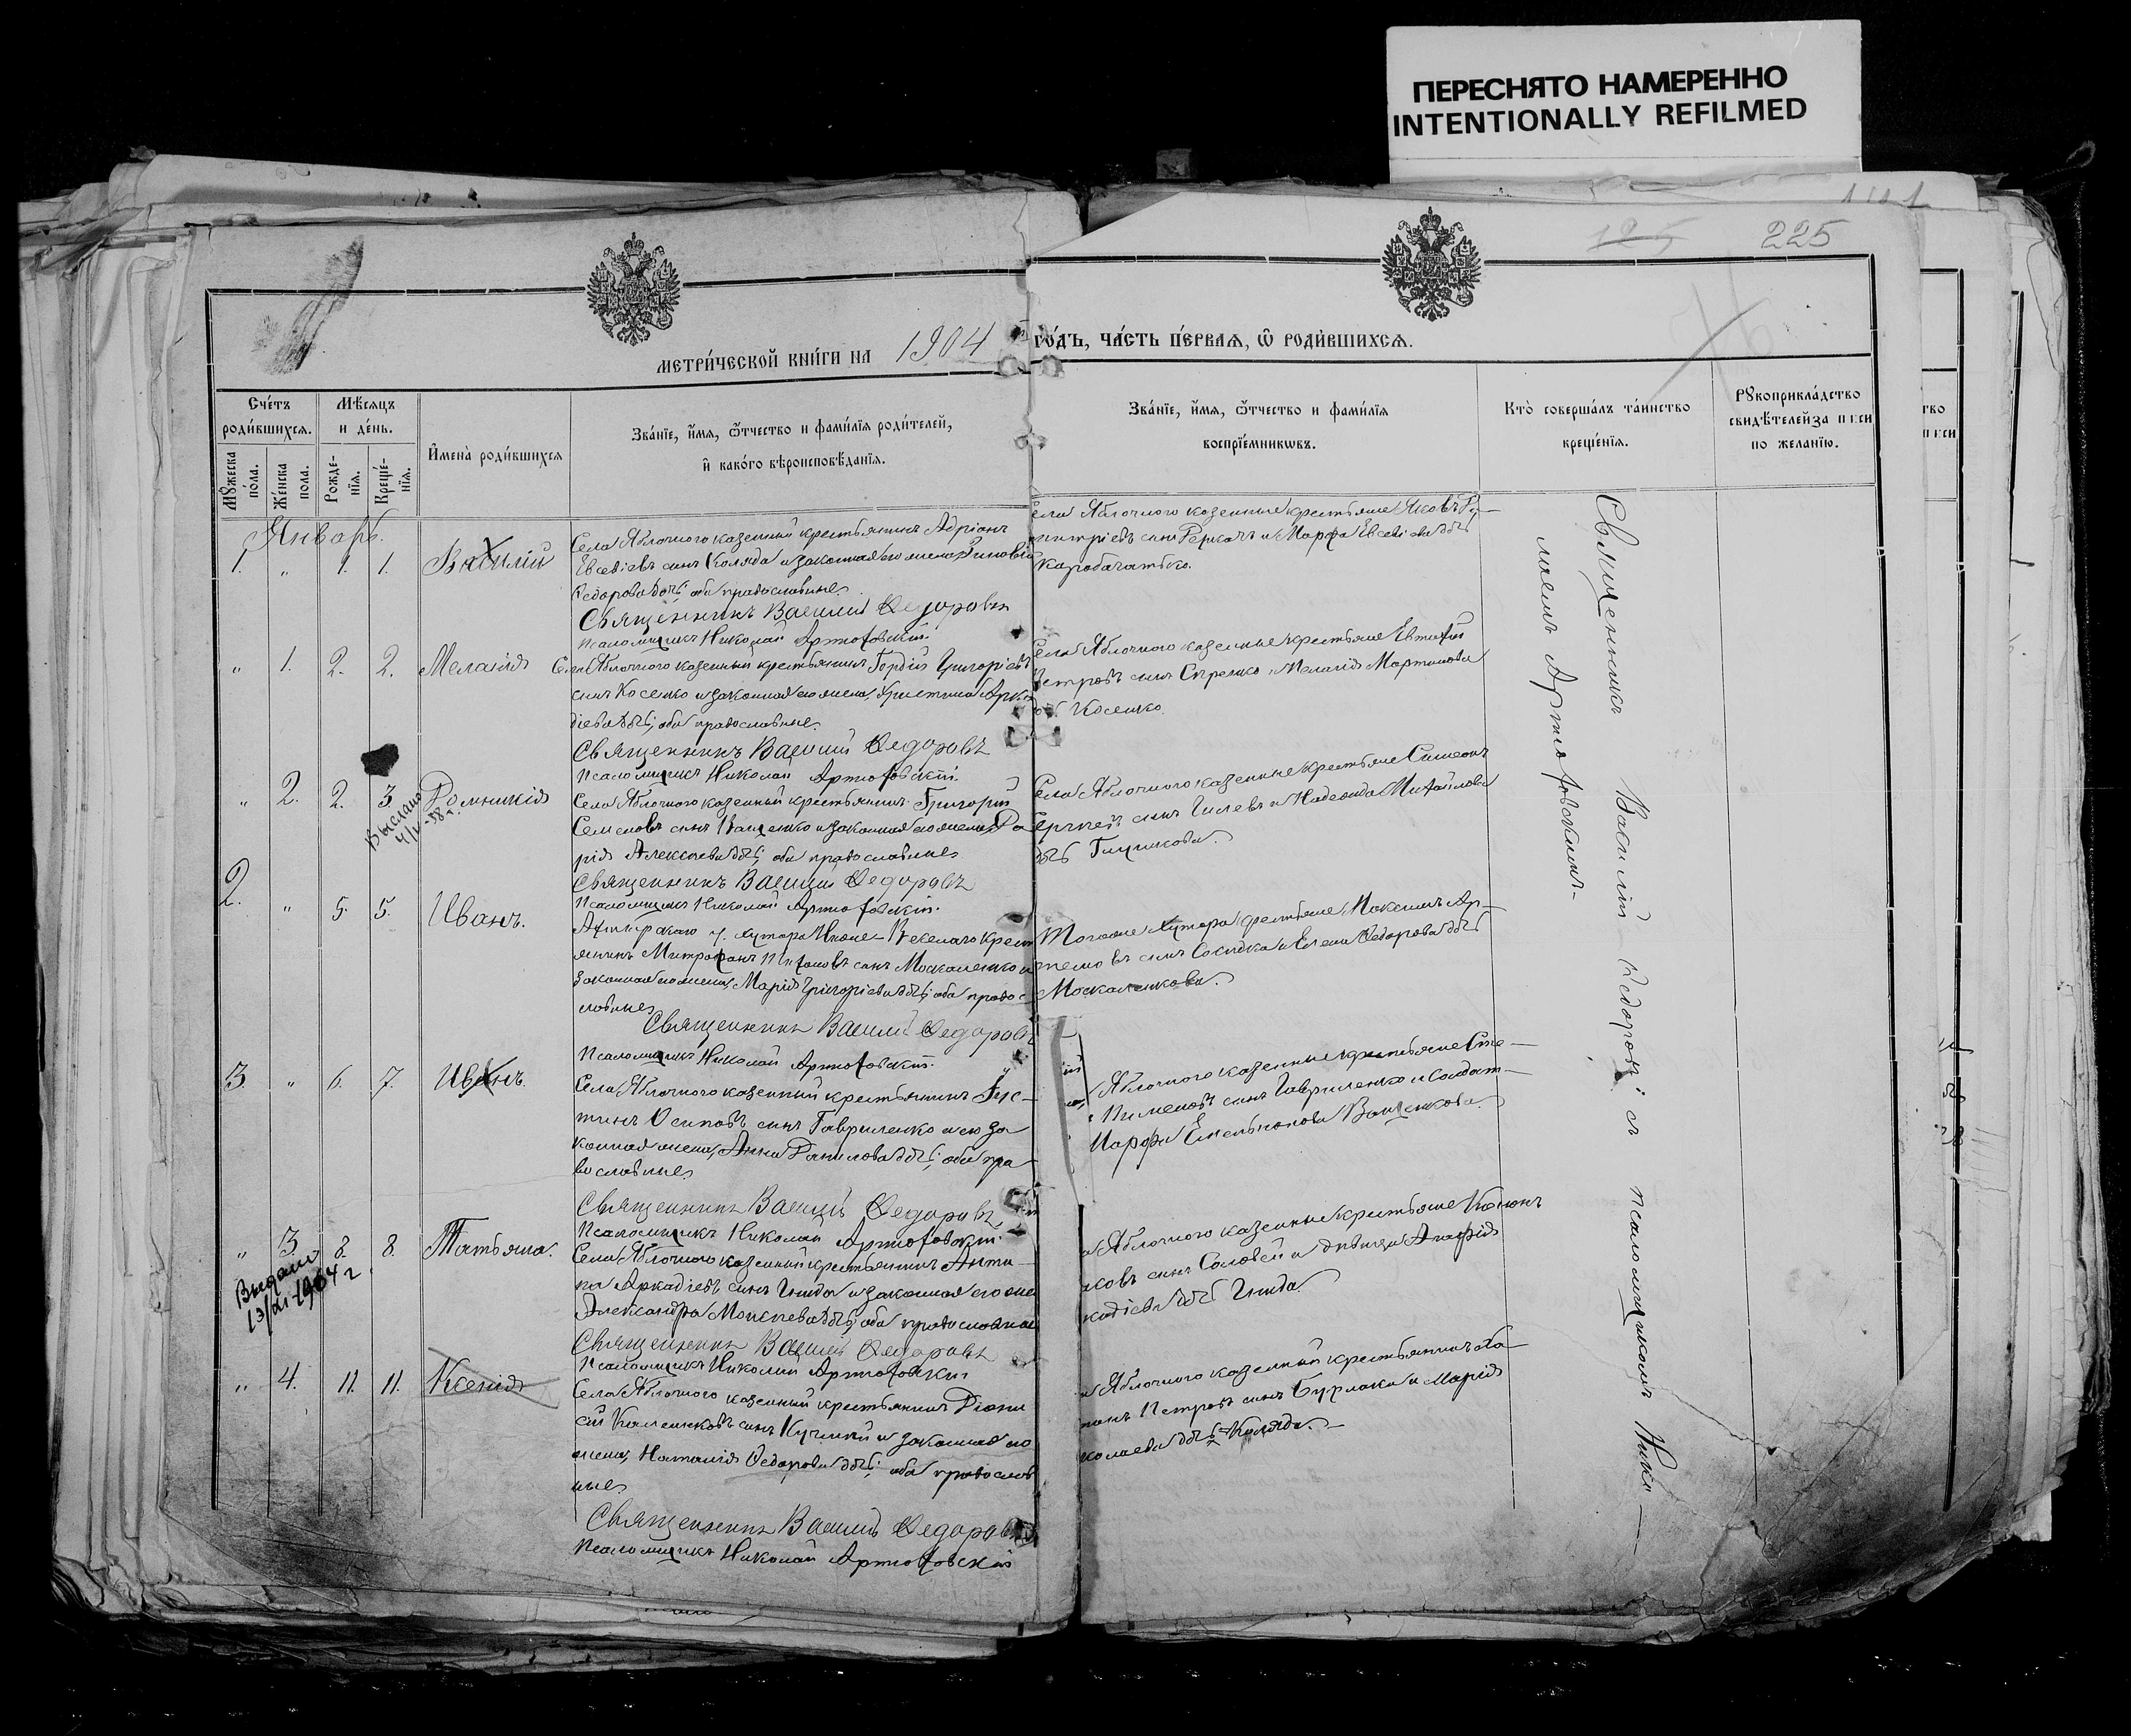 ПЕРЕСНЯТО НАМЕРЕННО
INTENTIONALLY REFILMED
225
МЕТРИ́ЧЕСКОЙ КНИ́ГИ НА 1904 ГО́ДЪ, ЧА́СТЬ ПЕ́РВАЯ, Ѿ РОДИ́ВШИХСЯ.
Сче́тъ роди́вшихся.
Мѣ́сяцъ и де́нь.
Мꙋ́жеска по́ла.
Же́нска пола.
Рожде-нїя.
Креще́-нїя.
И҆мена̀ роди́вшихся
Зва́нїе, и҆́мя, ѻ҆́тчество и фами́лїя роди́телей,
и҆ како́го вѣроисповѣ́данїя.
Зва́нїе, и҆́мя, ѻ҆́тчество и фами́лїя
воспрїе́мникѡвъ.
Кто̀ соверша́лъ та́инство
креще́нїя.
Рꙋкоприкла́дство
свидѣ́телей за п и си
по жела́нїю.
Январь.
1. " 1. 1. Василій
Села Яблочного казенный крестьянинъ Адріанъ
Евсевіевъ сынъ Коляда и законная его жена Зиновія
Ѳедорова дчь; оба православные
Священникъ Василій Ѳедоровъ
Псаломщикъ Николай Артюховскій.
Села Яблочного казенные крестьяне Яковъ Ди-
митріевъ сынъ Деркачъ и Марѳа Евсевіева дчь
" 1. 2. 2. Меланія
Села Яблочного казенный крестьянинъ Гордій Григоріевъ
сынъ Косенко и законная его жена, Христина Арка
діева дчь; оба православные.
Священникъ Василій Ѳедоровъ
Псаломщикъ Николай Артюховскій.
Села Яблочного казенные крестьяне Евтихій
Петровъ сынъ Меланія Мартинова
Косенко
" 2. 2. 3. Домникія
Выслано
Села Яблочного казенный крестьянинъ Григорій
Семеновъ сынъ Ващенко и законная его жена, Да
рія Алексѣева дчь; оба православные
Священникъ Василій Ѳедоровъ
Псаломщикъ Николай Артюховскій.
Села Яблочного казенные крестьяне Симеонъ
Сергѣевъ сынъ и Надежда Михайлова
дчь
2. " 5. 5. Иванъ.
Ахтырскаго у. хутора крест
янинъ Митрофанъ сынъ Москаленко и
законная его жена, Марія Григоріева дчь; оба правос
лавные
Священникъ Василій Ѳедоровъ
Псаломщикъ Николай Артюховскій.
Тогоже хутора крестьяне Максимъ Ар-
темовъ сынъ и Елена Ѳедорова дчь
Москаленкова.
3. " 6. 7. Иванъ.
Села Яблочного казенный крестьянинъ Іус-
тинъ Осиповъ сынъ Гавриленко и его за
конная жена, Анна Данилова дчь; оба пра
вославные
Священникъ Василій Ѳедоровъ
Псаломщикъ Николай Артюховскій.
Яблочного казенные крестьяне Сте-
Пименовъ сынъ Гавриленко и солдат-
Марѳа Емельянова Ващенкова.
" 3 8. 8. Татьяна.
Выдано
Села Яблочного казенный крестьянинъ Анти-
па Аркадіевъ сынъ Гнида и законная его жена
Александра Моисеева дчь; оба православные
Священникъ Василій Ѳедоровъ
Псаломщикъ Николай Артюховскій
Яблочного казенные крестьяне Кононъ
сынъ Соловей и дѣвица Агафія
кадіева дчь Гнида.
" 4. 11. 11. Ксенія
Села Яблочного казенный крестьянинъ Діони
сій сынъ и законная его
жена, Наталія Ѳедорова дчь; оба православ
ные
Священникъ Василій Ѳедоровъ
Псаломщикъ Николай Артюховскій
Яблочного казенный крестьянинъ Ха-
Петровъ сынъ Бурлака и Марія
колаева дчь Коляда.
Священникъ Василій Ѳедоровъ съ псаломщикомъ Нико-
лаемъ Артюховскимъ-